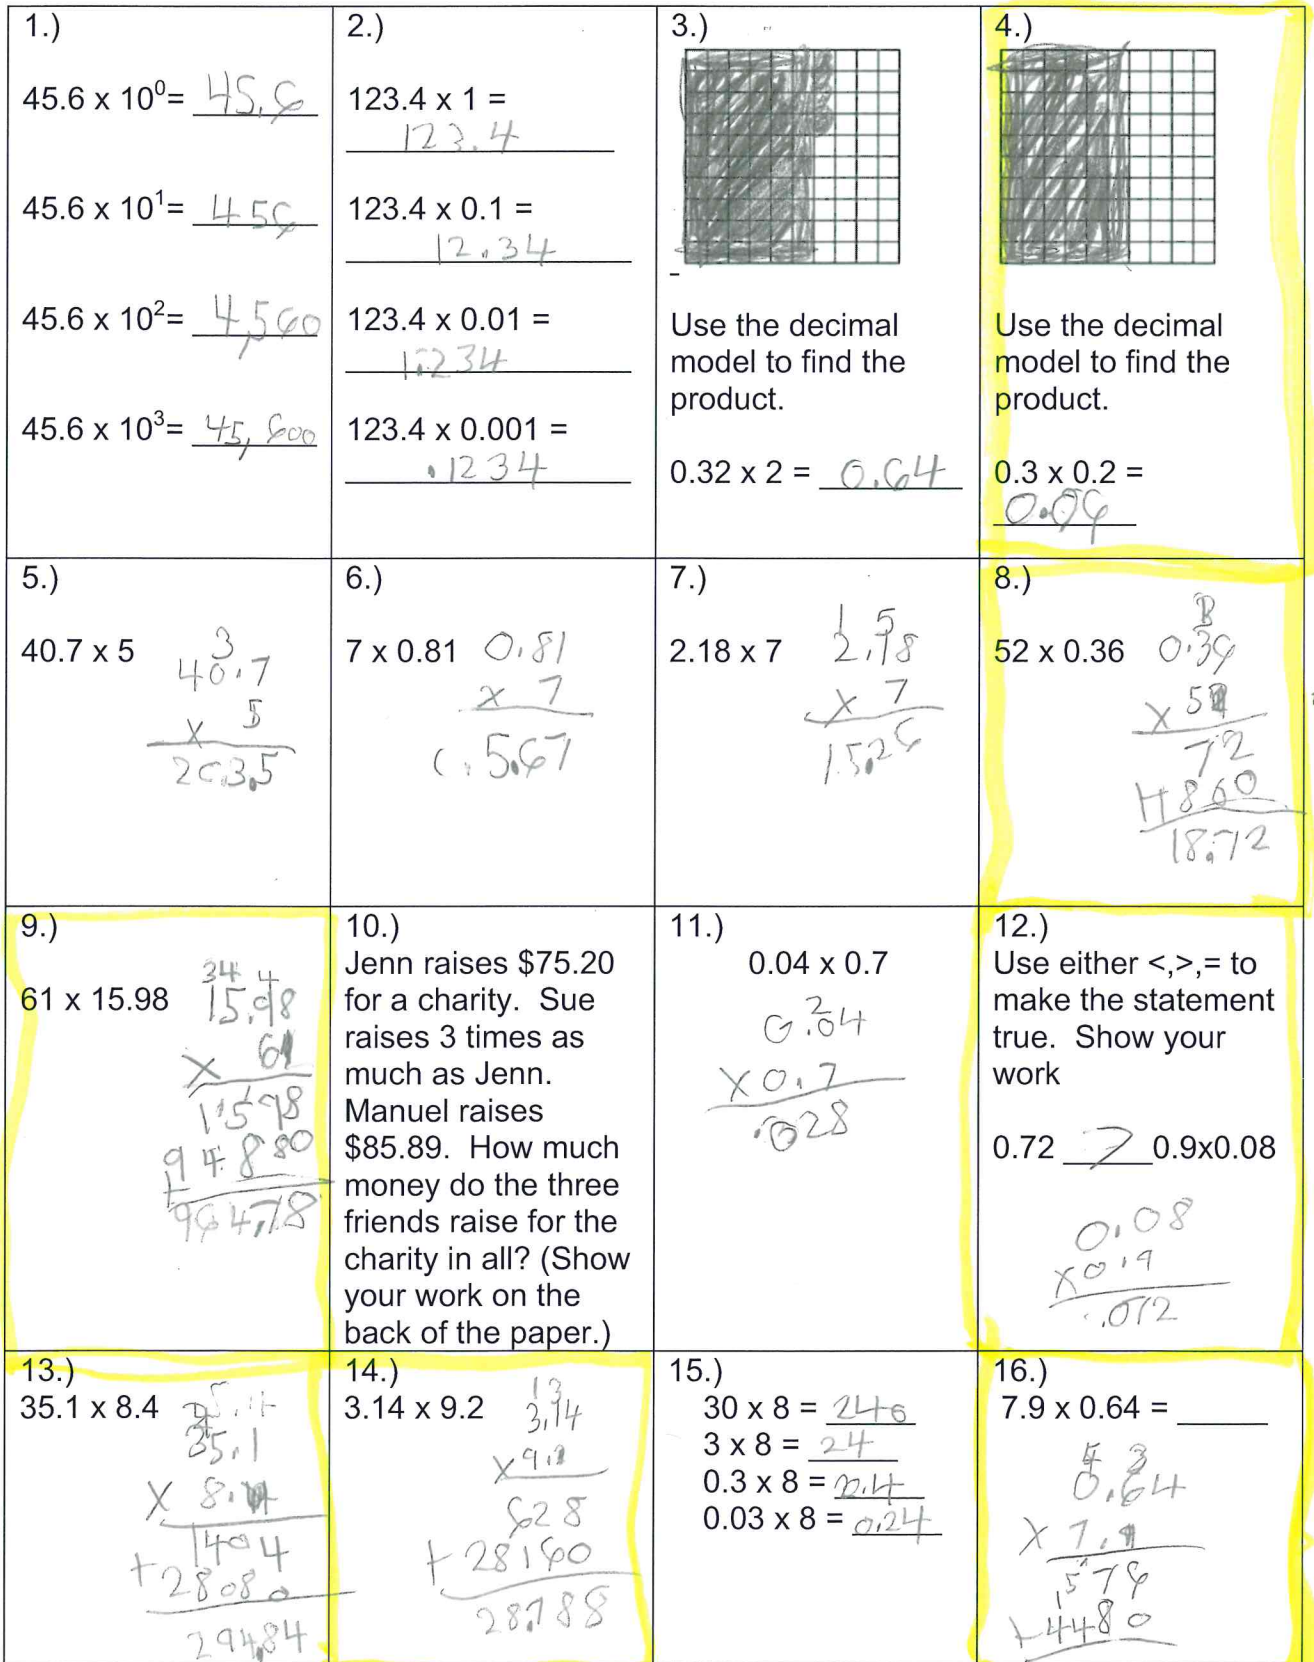 1.)
45.6 x 10⁰= 45.6
45.6 x 10¹= 456
45.6 x 10²= 4,560
45.6 x 10³= 45,600
2.)
123.4 x 1 =
123.4
123.4 x 0.1 =
12.34
123.4 x 0.01 =
1.234
123.4 x 0.001 =
.1234
3.)
Use the decimal
model to find the
product.
0.32 x 2 = 0.64
4.)
Use the decimal
model to find the
product.
0.3 x 0.2 =
0.06
5.)
40.7 x 5
3
40.7
x 5
203.5
6.)
7 x 0.81
0.81
x 7
5.67
7.)
2.18 x 7
1 5
2.18
x 7
15.26
8.)
52 x 0.36
0.36
x 5
72
+1860
18.72
9.)
61 x 15.98
34 4
15.98
x 61
1598
+94880
964.78
10.)
Jenn raises $75.20
for a charity. Sue
raises 3 times as
much as Jenn.
Manuel raises
$85.89. How much
money do the three
friends raise for the
charity in all? (Show
your work on the
back of the paper.)
11.)
0.04 x 0.7
2
0.04
x 0.7
.028
12.)
Use either <,>,= to
make the statement
true. Show your
work
0.72 > 0.9x0.08
0.08
x 0.9
.072
13.)
35.1 x 8.4
35.1
x 8.4
1404
+28080
294.84
14.)
3.14 x 9.2
13
3.14
x 9.2
628
+28160
28.788
15.)
30 x 8 = 240
3 x 8 = 24
0.3 x 8 = 2.4
0.03 x 8 = 0.24
16.)
7.9 x 0.64 =
3
0.64
x 7.9
576
+4480